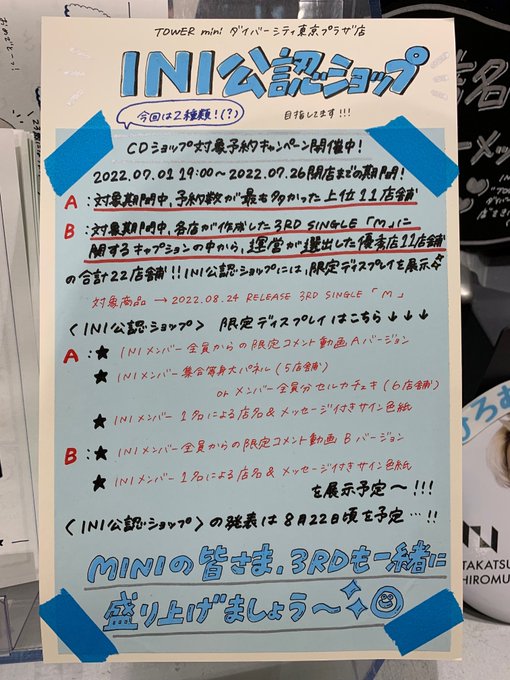 TOWER mini ダイバーシティ東京プラザ店
INI公認ショップ
今回は2種類！(?)
目指してます!!!
CDショップ対象予約キャンペーン開催中！
2022.07.01 19:00〜2022.07.26閉店までの期間！
A：対象期間中、予約数が最も多かった上位11店舗
B：対象期間中、各店が作成した3RD SINGLE「M」に
関するキャプションの中から、運営が選出した優秀店11店舗
の合計22店舗!!INI公認ショップには、限定ディスプレイを展示
対象商品→2022.08.24 RELEASE 3RD SINGLE「M」
〈INI公認ショップ〉限定ディスプレイはこちら↓↓↓
A：★ INIメンバー全員からの限定コメント動画Aバージョン
★ INIメンバー集合等身大パネル(5店舗)
orメンバー全員分セルカチェキ(6店舗)
★ INIメンバー1名による店名&メッセージ付きサイン色紙
B：★ INIメンバー全員からの限定コメント動画Bバージョン
★ INIメンバー1名による店名&メッセージ付きサイン色紙
を展示予定〜!!!
〈INI公認ショップ〉の発表は8月22日頃を予定…!!
MINIの皆さま、3RDも一緒に
盛り上げましょう〜
店名
メッ
ひろむ
TAKATSU
HIROMU